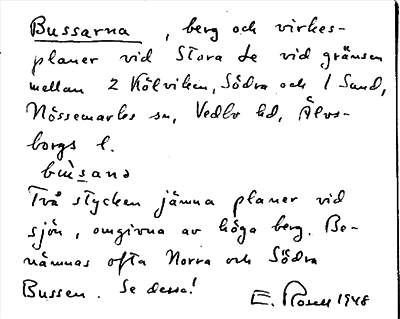 Bussarna, berg och virkes-
planer vid Stora Le vid gränsen
mellan 2 Kölviken, Södra och 1 Sund,
Nössemarks sn, Vedbo hd, Älvs-
borgs l.
bùsana
Två stycken jämna planer vid
sjön, omgivna av höga berg. Be-
nämnas ofta Norra och Södra
Bussen. Se dessa!
E. Rosell 1948